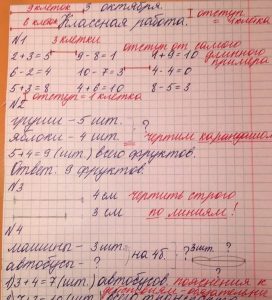 9 клеток 3 октября. отступ
6 клеток Классная работа. = 4 клетки
N1 3 клетки отступ от самого
2+3=5 9-8=1 1+9=10 длинного
6-2=4 10-7=3 4-4=0 примера
5+3=8 4+6=10 8-5=3
N2 отступ = 1 клетка
груши - 5 шт. ?
яблоки - 4 шт. = чертим карандашом
5+4=9 (шт.) всего фруктов.
Ответ: 9 фруктов.
N3
4 см чертить строго
3 см по линиям!
N4
машины - 3 шт. ? 3шт. ?
автобусы - ? на 4б. ?
1) 3+4=7 (шт.) автобусов. пояснения к